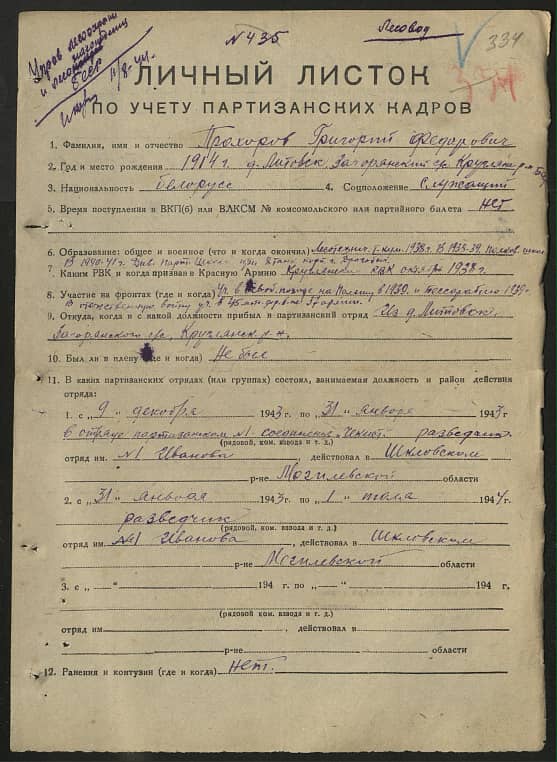 №435
Лесовод
334
Упров лесоохраны
и лесонасажд
БССР
11/8-44.
ЛИЧНЫЙ ЛИСТОК
ПО УЧЕТУ ПАРТИЗАНСКИХ КАДРОВ
1. Фамилия, имя и отчество Прохоров Григорий Федарович
2. Год и место рождения 1914 г. д. Литовск Загоранский с/с Круглянск. р-н
3. Национальность белорусс 4. Соцположение Служащий
5. Время поступления в ВКП(б) или ВЛКСМ № комсомольского или партийного билета НЕТ
6. Образование: общее и военное (что и когда окончил) 1938г. В 1938-39. Полков. школа
В 1940-41 г. Див. Парт. Школа при
7. Каким РВК и когда призван в Красную Армию Круглянским РВК октябрь 1938г.
8. Участие на фронтах (где и когда) Уч. в походе на Польшу в 1939. и 1939-
в отечественную войну уч. в
9. Откуда, когда и с какой должности прибыл в партизанский отряд Из д. Литовск,
Загоранского с/с, Круглянск. р-н.
10. Был ли в плену (где и когда) Не был
11. В каких партизанских отрядах (или группах) состоял, занимаемая должность и район действия
отряда:
1. с „ 9 “ декабря 1943 г. по „ 31 “ января 1943 г
в отряде партизанском №1 соединения "Чекист" разведчик
(рядовой, ком. взвода и т. д.)
отряд им. №1 Иванова, действовал в Шкловском
р-не Могилевской области
2. с „ 31 “ января 1943 г. по „ 1 “ июля 1944 г.
разведчик
(рядовой, ком. взвода и т. д.)
отряд им. №1 Иванова, действовал в Шкловском
р-не Могилевской области
3. с „ “ 194 г. по „ “ 194 г,
(рядовой, ком. взвода и т. д.)
отряд им. , действовал в
р-не области
12. Ранения и контузии (где и когда) Нет.